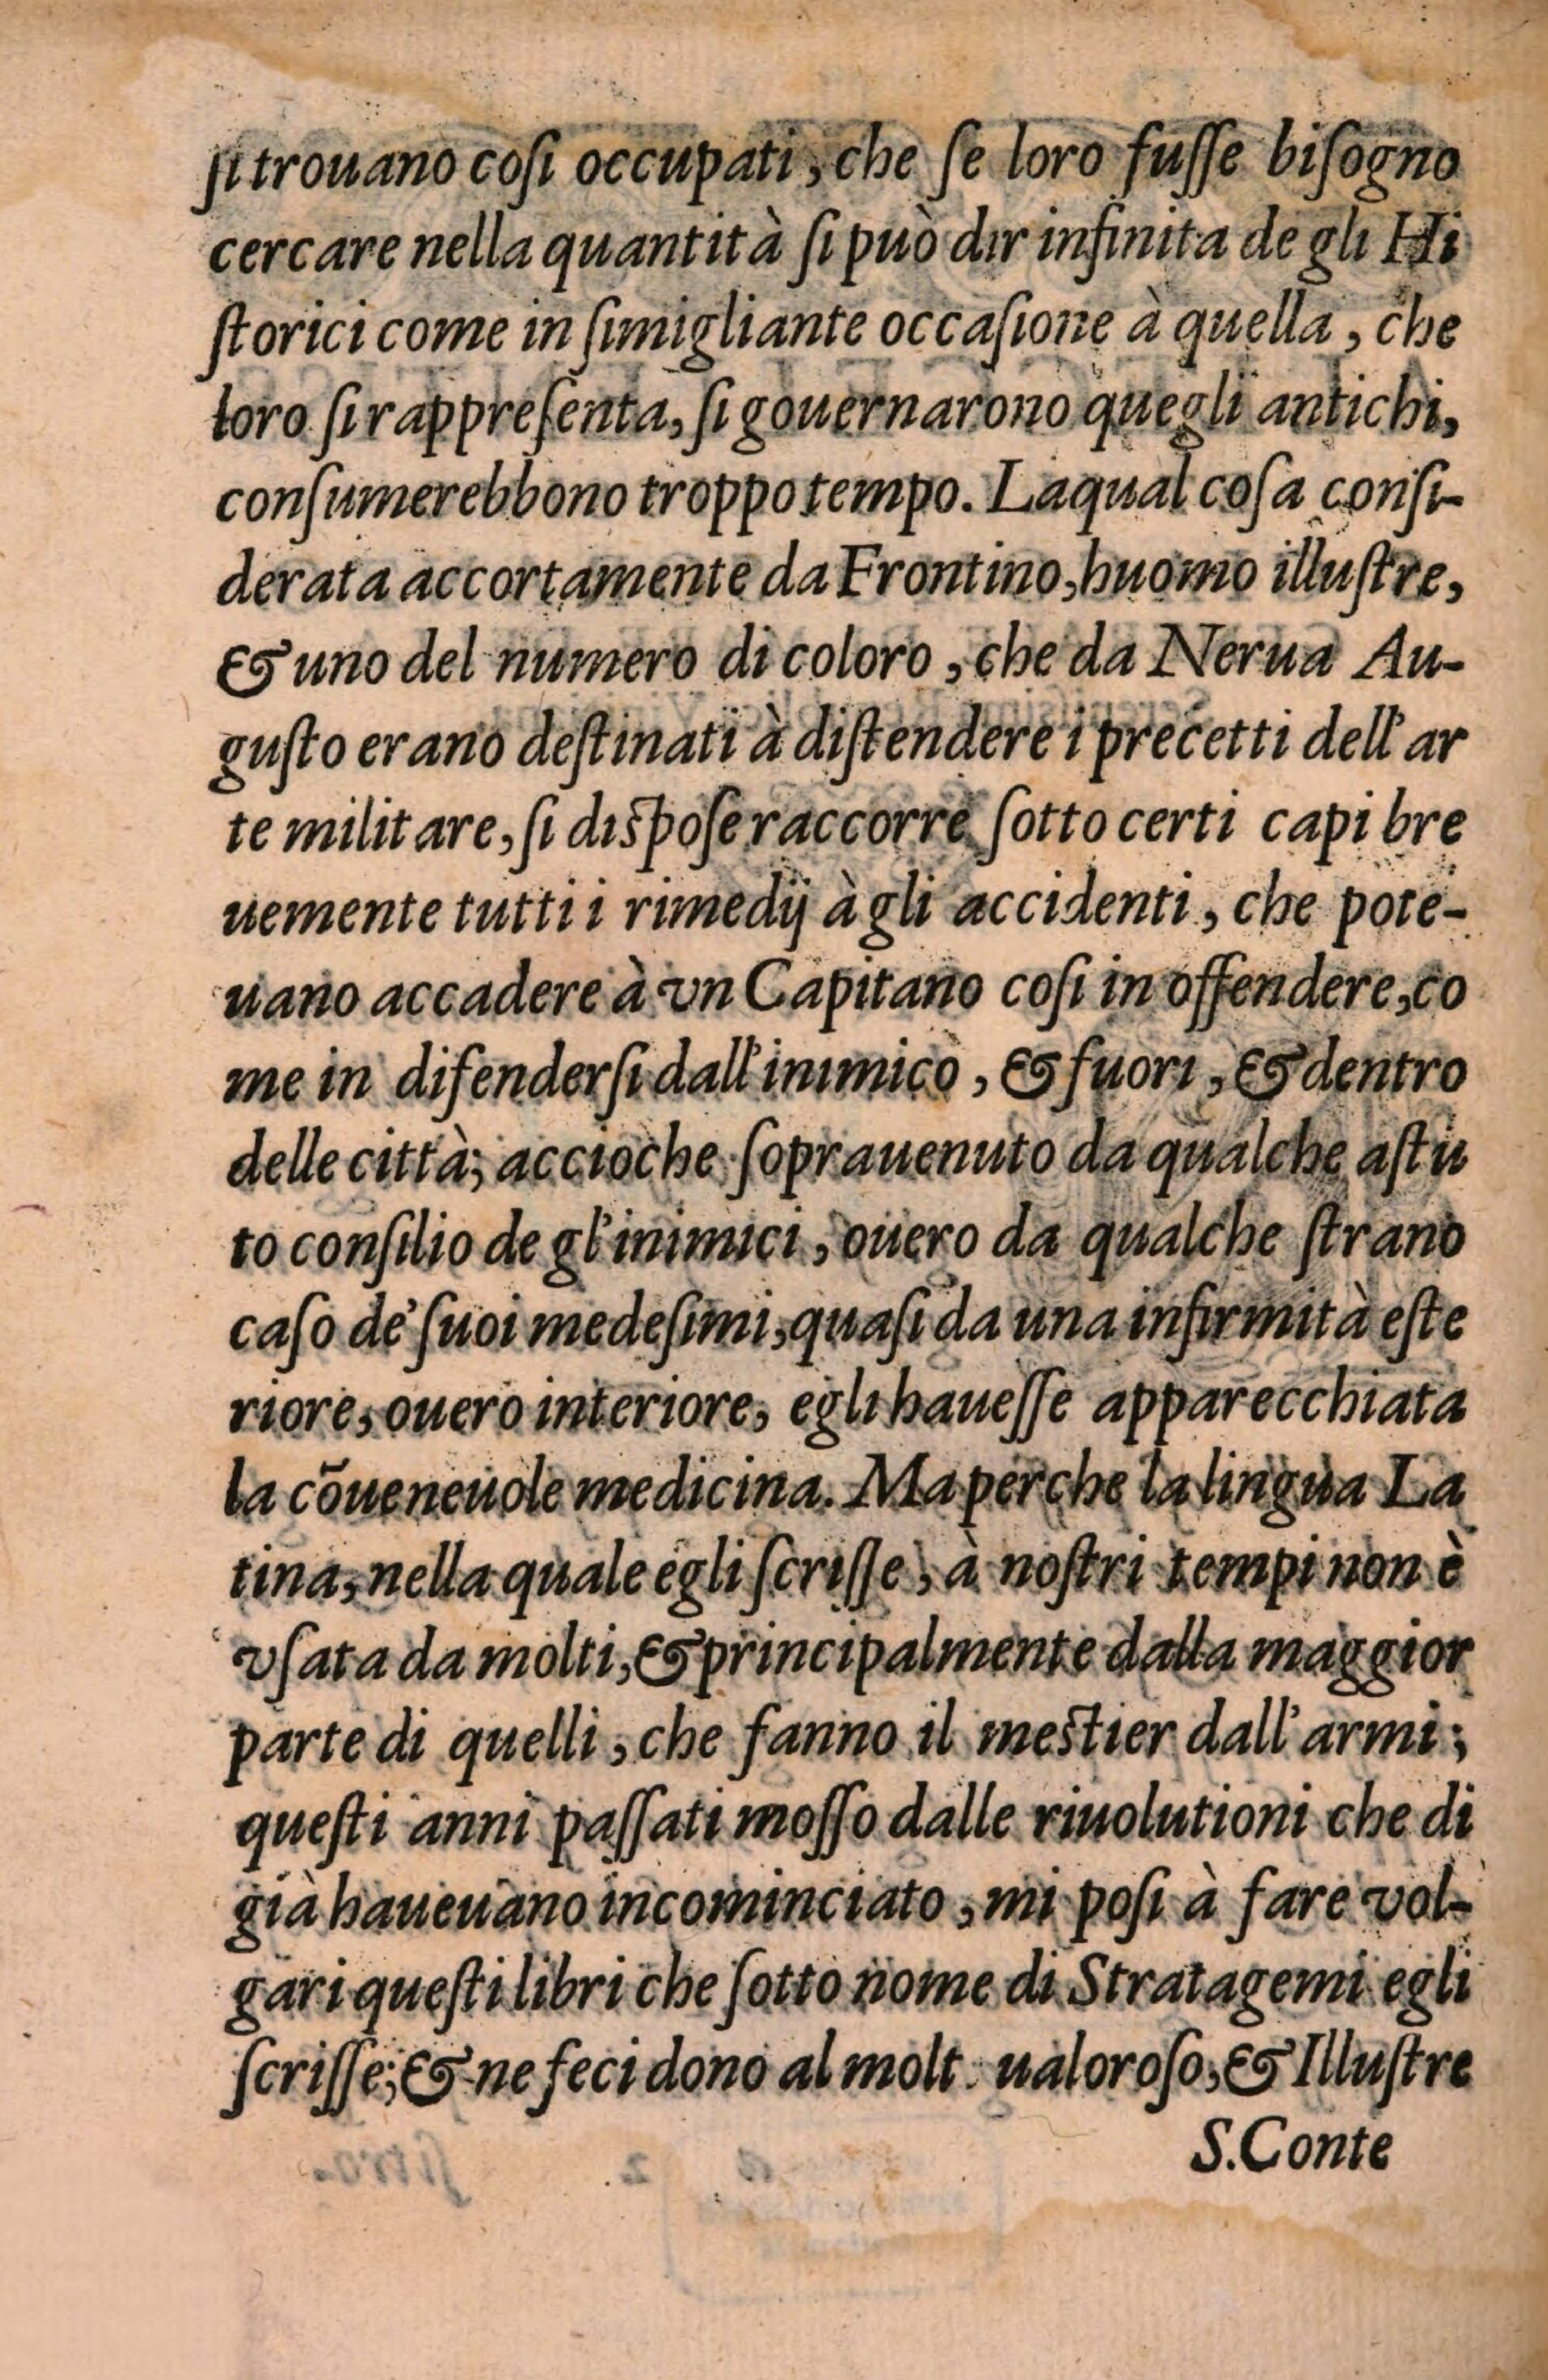 ſi trouano coſi occupati, che ſe loro fuſſe biſogno
cercare nella quantità ſi può dir infinita de gli Hi
ſtorici come in ſimigliante occaſione à quella, che
loro ſi rappreſenta, ſi gouernarono quegli antichi,
conſumerebbono troppo tempo. Laqual coſa conſi-
derata accortamente da Frontino, huomo illuſtre,
& uno del numero di coloro, che da Nerua Au-
guſto erano deſtinati à diſtendere i precetti dell'ar
te militare, ſi diſpoſe raccorre ſotto certi capi bre
uemente tutti i rimedij à gli accidenti, che pote-
uano accadere à vn Capitano coſi in offendere, co
me in difenderſi dall'inimico, & fuori, & dentro
delle città; accioche ſoprauenuto da qualche aſtu
to conſilio de gl'inimici, ouero da qualche ſtrano
caſo de' ſuoi medeſimi, quaſi da una infirmità eſte
riore, ouero interiore, egli haueſſe apparecchiata
la cõueneuole medicina. Ma perche la lingua La
tina, nella quale egli ſcriſſe, à noſtri tempi non è
vſata da molti, & principalmente dalla maggior
parte di quelli, che fanno il meſtier dall'armi;
queſti anni paſſati moſſo dalle riuolutioni che di
già haueuano incominciato, mi poſi à fare vol-
gari queſti libri che ſotto nome di Stratagemi egli
ſcriſſe; & ne feci dono al molt ualoroſo, & Illuſtre
S. Conte